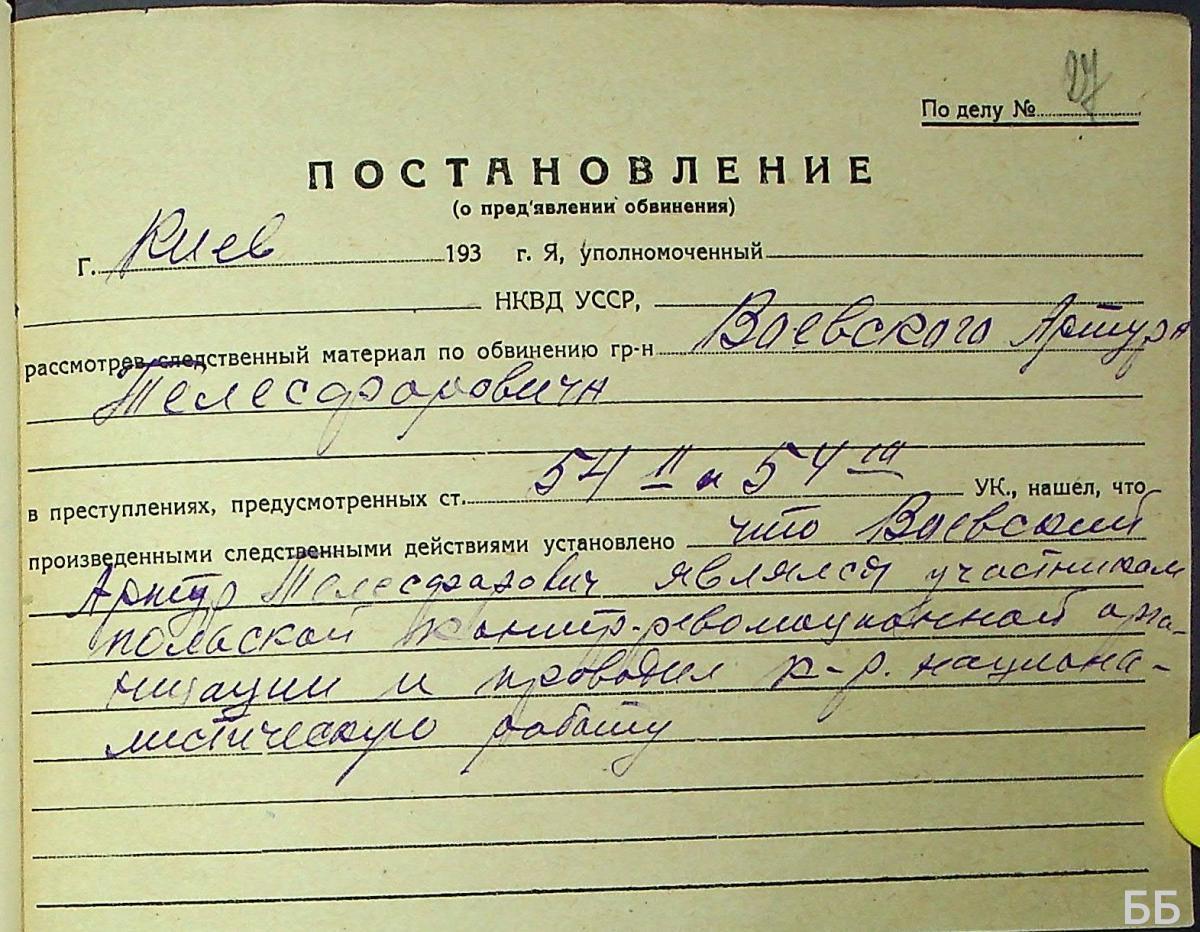 27
По делу №
ПОСТАНОВЛЕНИЕ
(о пред'явлении обвинения)
Г. Киев 193 г. Я, уполномоченный
НКВД УССР,
рассмотрев следственный материал по обвинению гр-н Ваевского Артура
Телесфоровича
в преступлениях, предусмотренных ст. 54 11 и 54 10 УК., нашел, что
произведенными следственными действиями установлено что Ваевский
Артур Телесфорович являлся участником
польской контр-революционной орга-
низации и проводил к-р. национа-
листическую работу
ББ